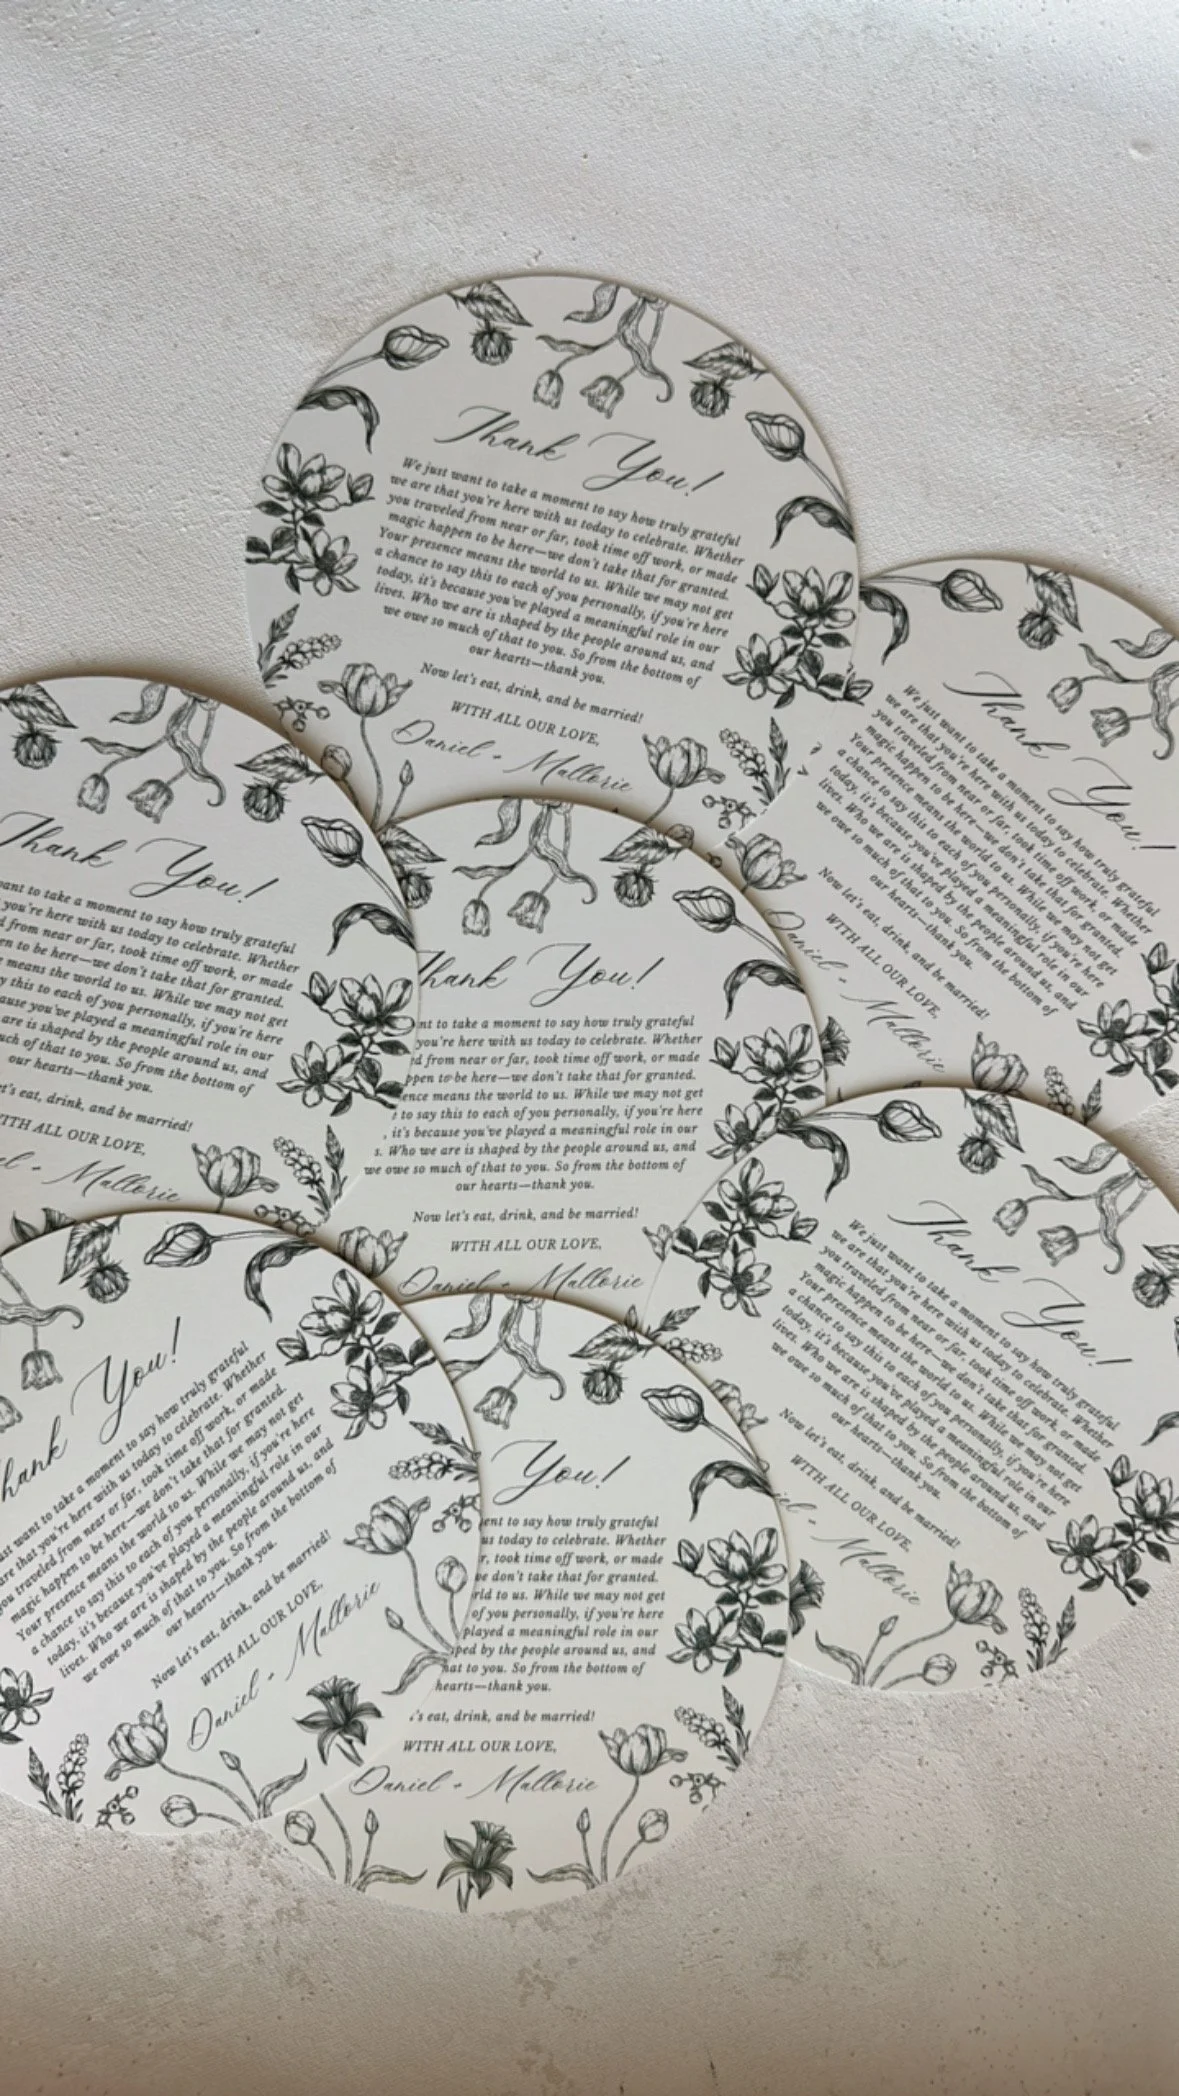 Thank You!
We just want to take a moment to say how truly grateful
we are that you're here with us today to celebrate. Whether
you traveled from near or far, took time off work, or made
magic happen to be here—we don't take that for granted.
Your presence means the world to us. While we may not get
a chance to say this to each of you personally, if you're here
today, it's because you've played a meaningful role in our
lives. Who we are is shaped by the people around us, and
we owe so much of that to you. So from the bottom of
our hearts—thank you.
Now let's eat, drink, and be married!
WITH ALL OUR LOVE,
Daniel + Mallorie
Thank You!
We just want to take a moment to say how truly grateful
we are that you're here with us today to celebrate. Whether
you traveled from near or far, took time off work, or made
magic happen to be here—we don't take that for granted.
Your presence means the world to us. While we may not get
a chance to say this to each of you personally, if you're here
today, it's because you've played a meaningful role in our
lives. Who we are is shaped by the people around us, and
we owe so much of that to you. So from the bottom of
our hearts—thank you.
Now let's eat, drink, and be married!
WITH ALL OUR LOVE,
Daniel + Mallorie
Thank You!
ant to take a moment to say how truly grateful
you're here with us today to celebrate. Whether
d from near or far, took time off work, or made
en to be here—we don't take that for granted.
means the world to us. While we may not get
y this to each of you personally, if you're here
ause you've played a meaningful role in our
are is shaped by the people around us, and
uch of that to you. So from the bottom of
our hearts—thank you.
t's eat, drink, and be married!
WITH ALL OUR LOVE,
el + Mallorie
hank You!
nt to take a moment to say how truly grateful
you're here with us today to celebrate. Whether
d from near or far, took time off work, or made
ppen to be here—we don't take that for granted.
ence means the world to us. While we may not get
to say this to each of you personally, if you're here
, it's because you've played a meaningful role in our
s. Who we are is shaped by the people around us, and
we owe so much of that to you. So from the bottom of
our hearts—thank you.
Now let's eat, drink, and be married!
WITH ALL OUR LOVE,
Daniel + Mallorie
Thank You!
We just want to take a moment to say how truly grateful
we are that you're here with us today to celebrate. Whether
you traveled from near or far, took time off work, or made
magic happen to be here—we don't take that for granted.
Your presence means the world to us. While we may not get
a chance to say this to each of you personally, if you're here
today, it's because you've played a meaningful role in our
lives. Who we are is shaped by the people around us, and
we owe so much of that to you. So from the bottom of
our hearts—thank you.
Now let's eat, drink, and be married!
WITH ALL OUR LOVE,
iel + Mallorie
hank You!
ust want to take a moment to say how truly grateful
are that you're here with us today to celebrate. Whether
you traveled from near or far, took time off work, or made
magic happen to be here—we don't take that for granted.
Your presence means the world to us. While we may not get
a chance to say this to each of you personally, if you're here
today, it's because you've played a meaningful role in our
lives. Who we are is shaped by the people around us, and
we owe so much of that to you. So from the bottom of
our hearts—thank you.
Now let's eat, drink, and be married!
WITH ALL OUR LOVE,
Daniel + Mallorie
You!
ent to say how truly grateful
us today to celebrate. Whether
r, took time off work, or made
we don't take that for granted.
rld to us. While we may not get
of you personally, if you're here
played a meaningful role in our
ped by the people around us, and
hat to you. So from the bottom of
hearts—thank you.
's eat, drink, and be married!
WITH ALL OUR LOVE,
Daniel + Mallorie